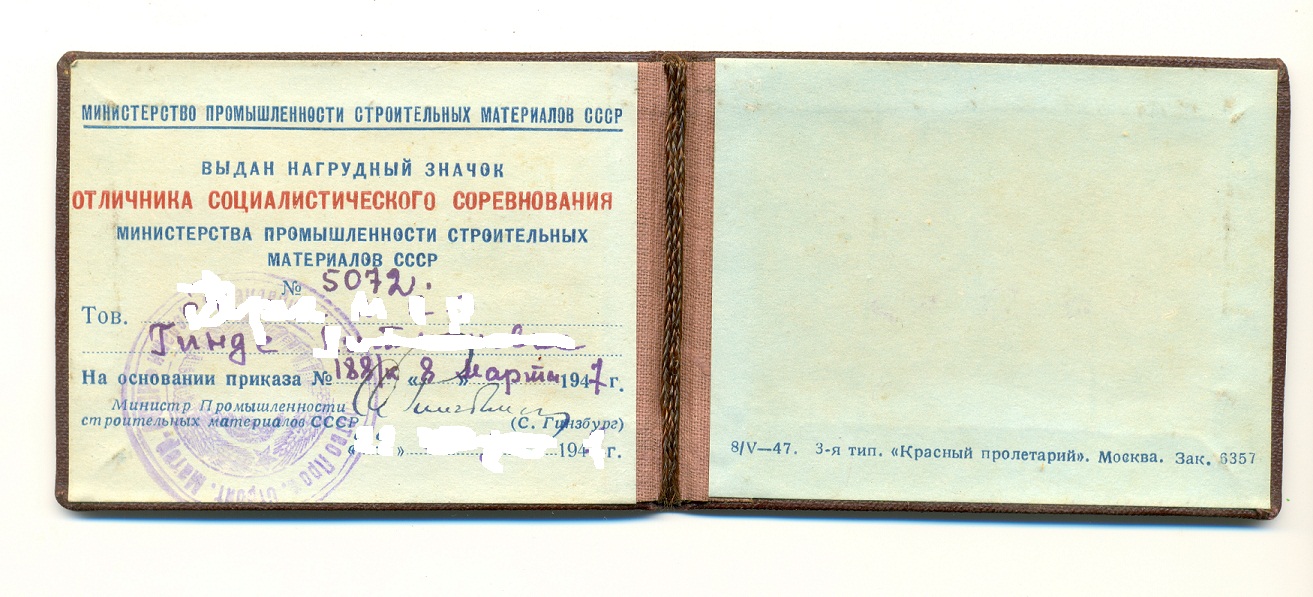 МИНИСТЕРСТВО ПРОМЫШЛЕННОСТИ СТРОИТЕЛЬНЫХ МАТЕРИАЛОВ СССР
ВЫДАН НАГРУДНЫЙ ЗНАЧОК
ОТЛИЧНИКА СОЦИАЛИСТИЧЕСКОГО СОРЕВНОВАНИЯ
МИНИСТЕРСТВА ПРОМЫШЛЕННОСТИ СТРОИТЕЛЬНЫХ
МАТЕРИАЛОВ СССР
№ 5072.
Тов.
На основании приказа № 188/к «8» марта 1947 г.
Министр Промышленности
строительных материалов СССР
(С. Гинзбург)
194 г.
8/V—47. 3-я тип. «Красный пролетарий». Москва. Зак. 6357